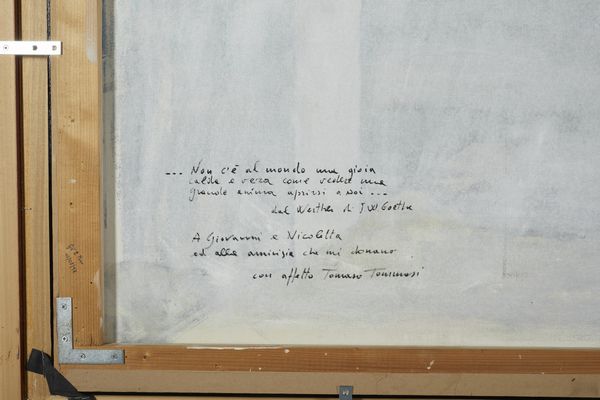 ... Non c'è al mondo una gioia
calda e vera come vedere una
grande anima aprirsi a noi ...
dal Werther di J.W. Goethe
A Giovanni e Nicoletta
ed alla amicizia che mi donano
con affetto Tomaso Tommasi